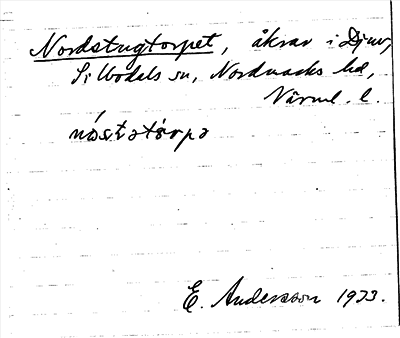 Nordstugtorpet, åkrar i Djuv,
Silbodals sn, Nordmarks hd,
Värml. l.
nos̀tatårpa
E. Andersson 1933.